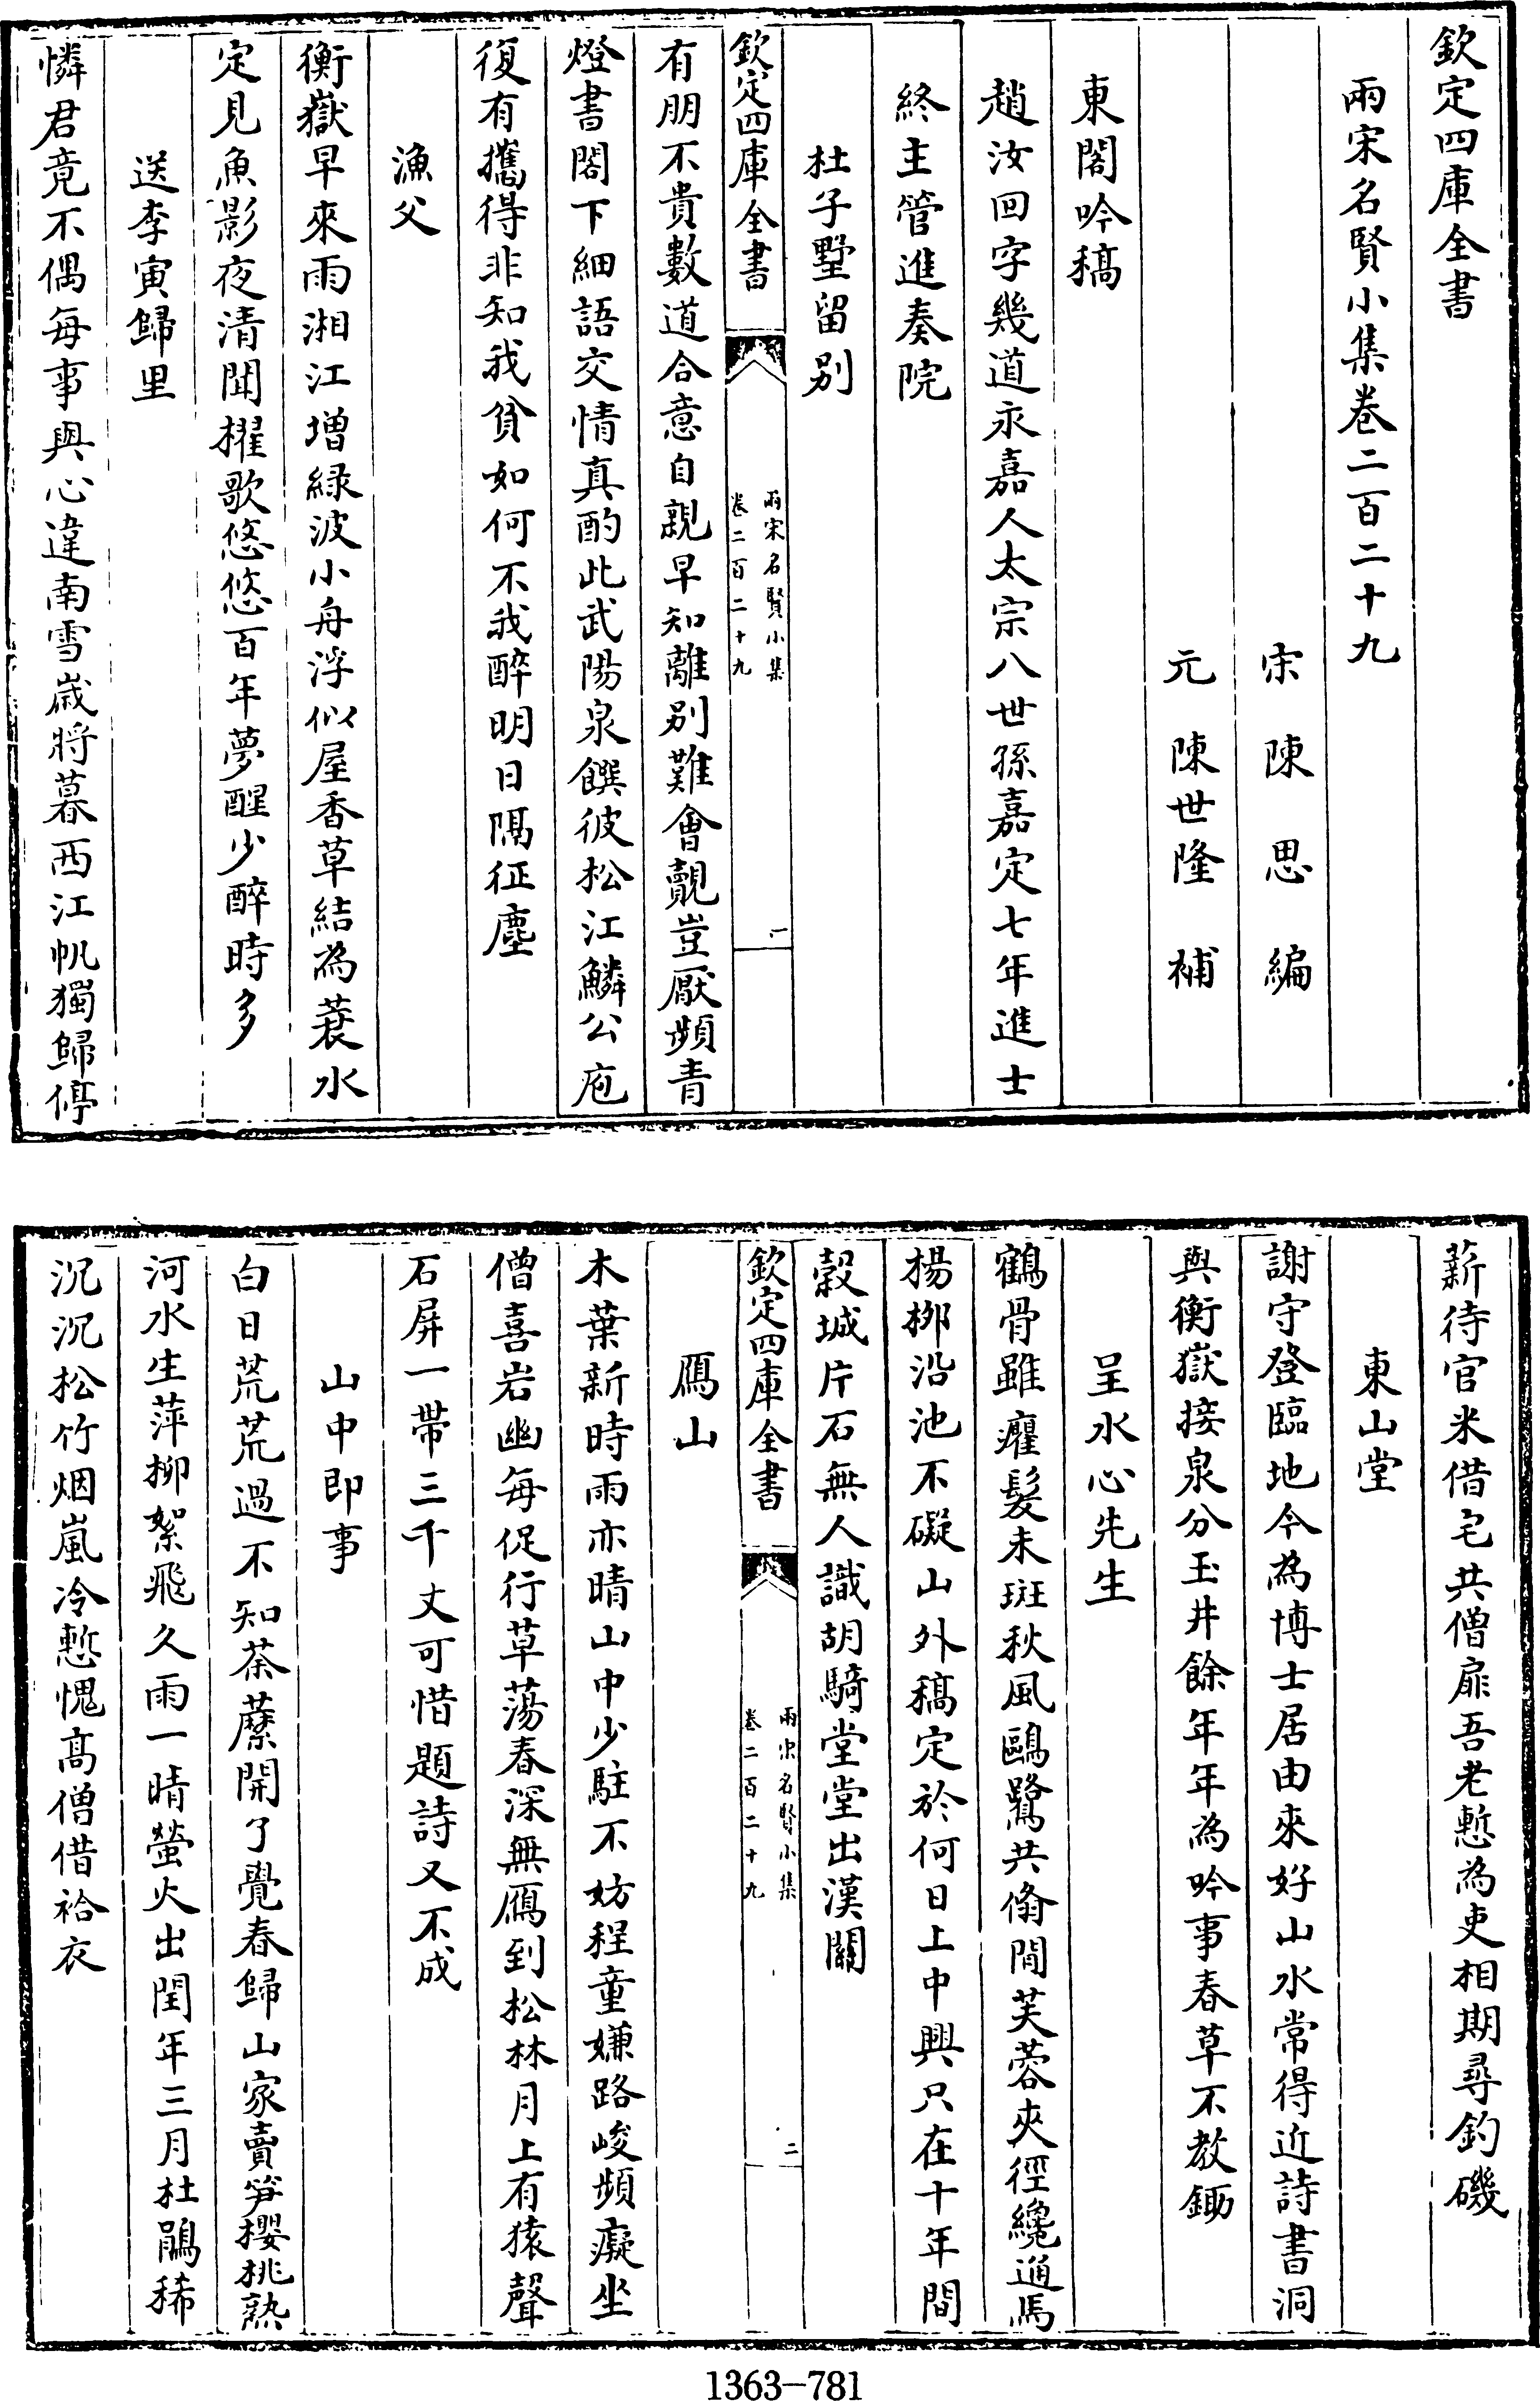 欽定四庫全書
兩宋名賢小集卷二百二十九
宋陳思編
元陳世隆補
東閣吟稿
趙汝回字幾道永嘉人太宗八世孫嘉定七年進士
終主管進奏院
杜子墅留別
欽定四庫全書
兩宋名賢小集
卷二百二十九
一
有朋不貴數道合意自親早知離別難會覿豈厭頻青
燈書閣下細語交情真酌此武陽泉饌彼松江鱗公庖
復有攜得非知我貧如何不我醉明日隔征塵
漁父
衡嶽早來雨湘江增緑波小舟浮似屋香草結為蓑水
定見魚影夜清聞櫂歌悠悠百年夢醒少醉時多
送李寅歸里
憐君竟不偶每事與心違南雪歳將暮西江帆獨歸停
薪待官米借宅共僧扉吾老慙為吏相期尋釣磯
東山堂
謝守登臨地今為博士居由來好山水常得近詩書洞
與衡嶽接泉分玉井餘年年為吟事春草不教鋤
呈水心先生
鶴骨雖癯髮未斑秋風鷗鷺共脩閒芙蓉夾徑纔通馬
楊柳沿池不礙山外稿定於何日上中興只在十年間
榖城片石無人識胡騎堂堂出漢關
欽定四庫全書
兩宋名賢小集
卷二百二十九
二
鴈山
木葉新時雨亦晴山中少駐不妨程童嫌路峻頻癡坐
僧喜岩幽每促行草蕩春深無鴈到松林月上有猿聲
石屏一帶三千丈可惜題詩又不成
山中即事
白日荒荒過不知荼蘼開了覺春歸山家賣笋櫻桃熟
河水生萍柳絮飛久雨一晴螢火出閏年三月杜鵑稀
沉沉松竹烟嵐冷慙愧髙僧借袷衣
1363-781